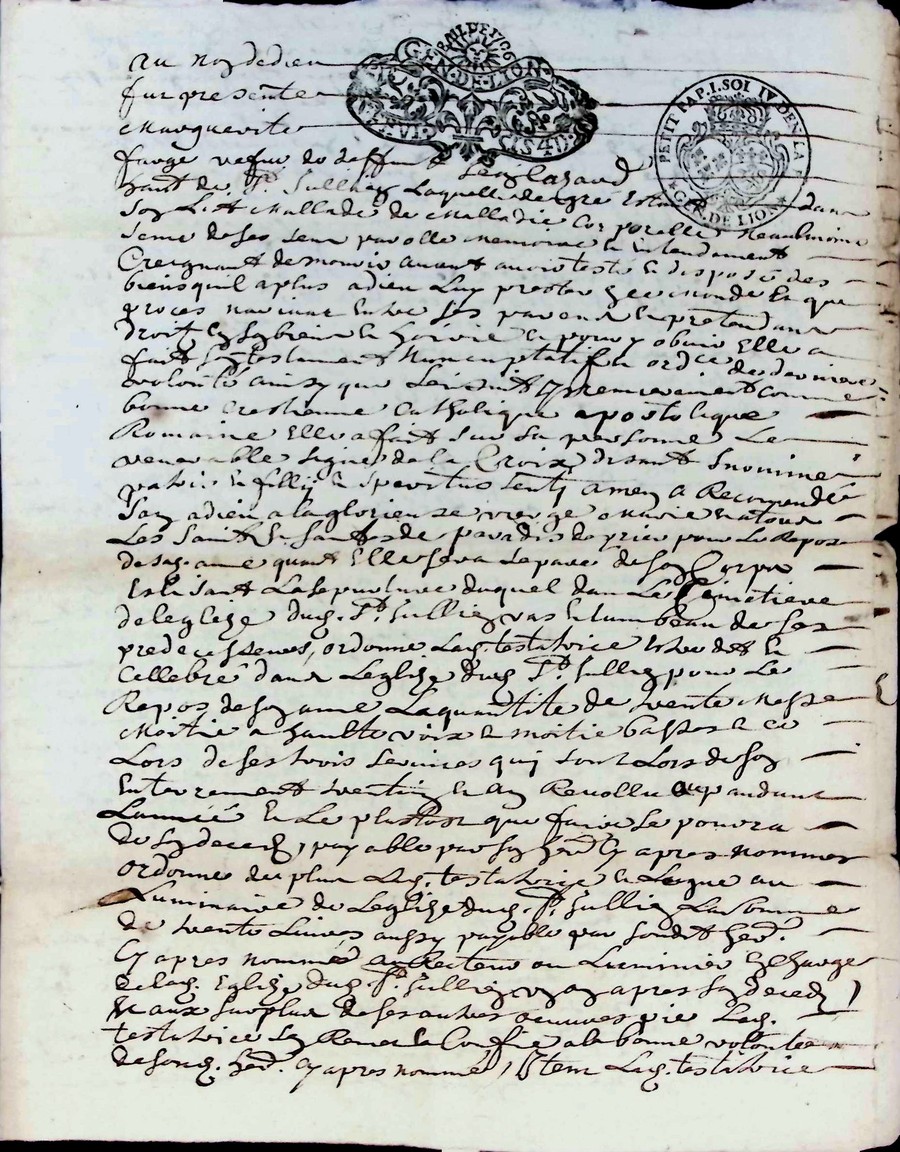 Au nom de dieu
fut presente
Marguerite
GEN. DE LION
CIS 4 D.
PETIT PAP. I. SOL IV DEN. LA F
GEN. DE LION
farge vefve de deffun
hant de St Jullien Laquelle de gre estant dans
son Lit Mallade de Malladie Corporelle Neanlmoins
sene de ses sens parolle memoire et entendement
Creignant de mourir avant avoir teste et dispose des
biens quil a plus a dieu Luy prester en ce monde Et que
proces navint entre ses parens et pretendans
droit en sy biens et hoirie Elle a
fait son testament Nuncupatif et ordce de derniere
volonte ainsy que sensuit premierement comme
bonne crestienne Catholique apostolique
Romaine Elle a fait sur sa personne Le
venerable signe de la Croix disant In nomine
patris et fillij et spiritus senti amen a Recomendé
son a dieu a la glorieuse vierge Marie et a tous
Les Saints et Saintes de paradis de prier pour Le Repos
de sad. ame quant Elle sera separe de son Corps
Eslisant La sepulture duquel dans Le Cimetiere
de leglise dud. St Jullien vas et tumbeau de ses
predecesseurs, ordonne Lad. testatrice estre dit et
Cellebré dans Leglise dud St Jullien pour Le
Repos de son ame La quantite de trente Messe
Moitie a haulte voix et moitie basses et ce
Lors de ses trois services quy sont Lors de son
Enterrement trentin et an Revollu et pandant
Lannée Et Le plustost que faire se pourra
de son deceds, payable par son herd. Cy apres nommer
ordonne de plus Lad. testatrice et Legue au
Luminaire de Leglise dud. St Jullien La somme
de trente Livres aussy payable par sondit herd.
Cy apres nommé au Recteur ou Luminier En charge
de lad. Eglise dud. St Jullien un an apres son deceds
Et aux surplus de ses autres oeuvres pie Lad.
testatrice sen Remet et Confie a la bonne volontee
de sond. herd. Cy apres nommé, Item Lad. testatrice